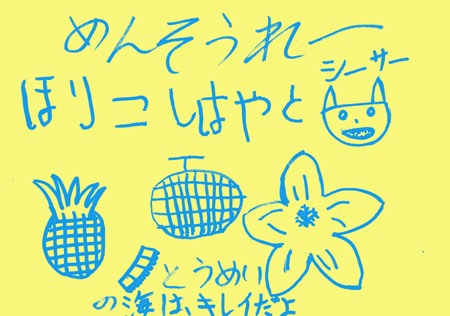 めんそうれー
シーサー
ほりこしはやと
とうめい
の海は、キレイだよ